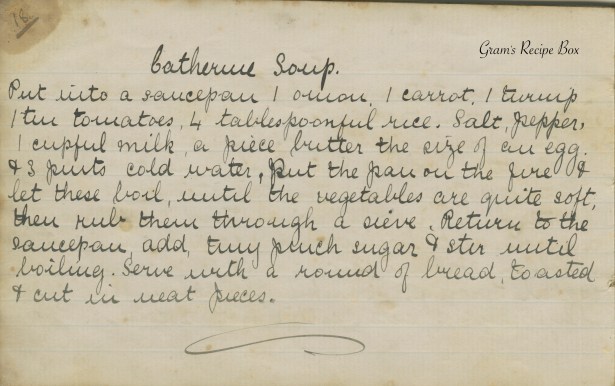 18.
Gram's Recipe Box
Catherine Soup.
Put into a saucepan 1 onion, 1 carrot, 1 turnip
1 tin tomatoes, 4 tablespoonful rice. Salt, pepper,
1 cupful milk, a piece butter the size of an egg.
& 3 pints cold water, put the pan on the fire &
let these boil, until the vegetables are quite soft,
then rub them through a sieve. Return to the
saucepan, add, tiny pinch sugar & stir until
boiling. Serve with a round of bread, toasted
& cut in neat pieces.